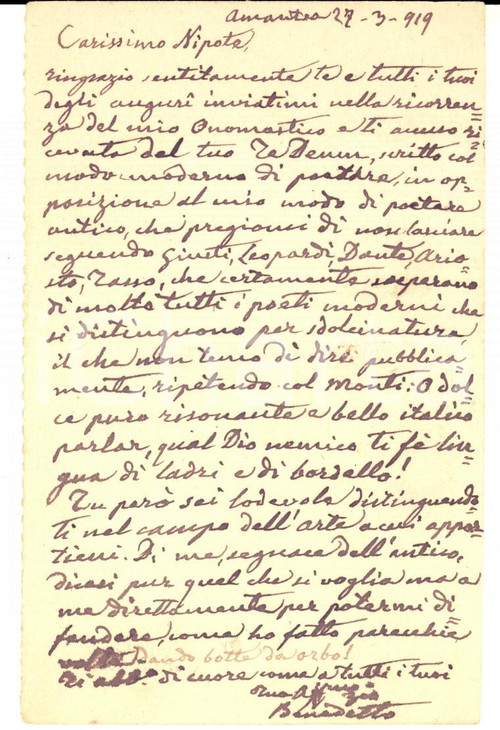 Amantea 27-3-919
Carissimo Nipote,
ringrazio sentitamente te e tutti i tuoi
degli augurî inviatimi nella ricorren=
za del mio Onomastico e ti accuso ri=
cevuta del tuo Te Deum, scritto col
modo moderno di poetare, in op=
posizione al mio modo di poetare
antico, che pregiomi di non lasciare
seguendo Giusti, Leopardi, Dante, Ario=
sto, Tasso, che certamente superano
di molto tutti i poeti moderni che
si distinguono per sdolcinatura,
il che non temo di dire pubblica=
mente, ripetendo col Monti: O dol=
ce puro risonante e bello italico
parlar, qual Dio nemico ti fè lin=
gua di ladri e di bordello!
Tu però sei lodevole distinguendo=
ti nel campo dell'arte a cui appar=
tieni. Di me, seguace dell'antico,
dicasi pur quel che si voglia ma a
me direttamente per potermi di=
fendere, come ho fatto parecchie
volte Dando botte da orbo!
Ti abb.º di cuore come a tutti i tuoi
Tuo Aff.mo Zio
Benedetto